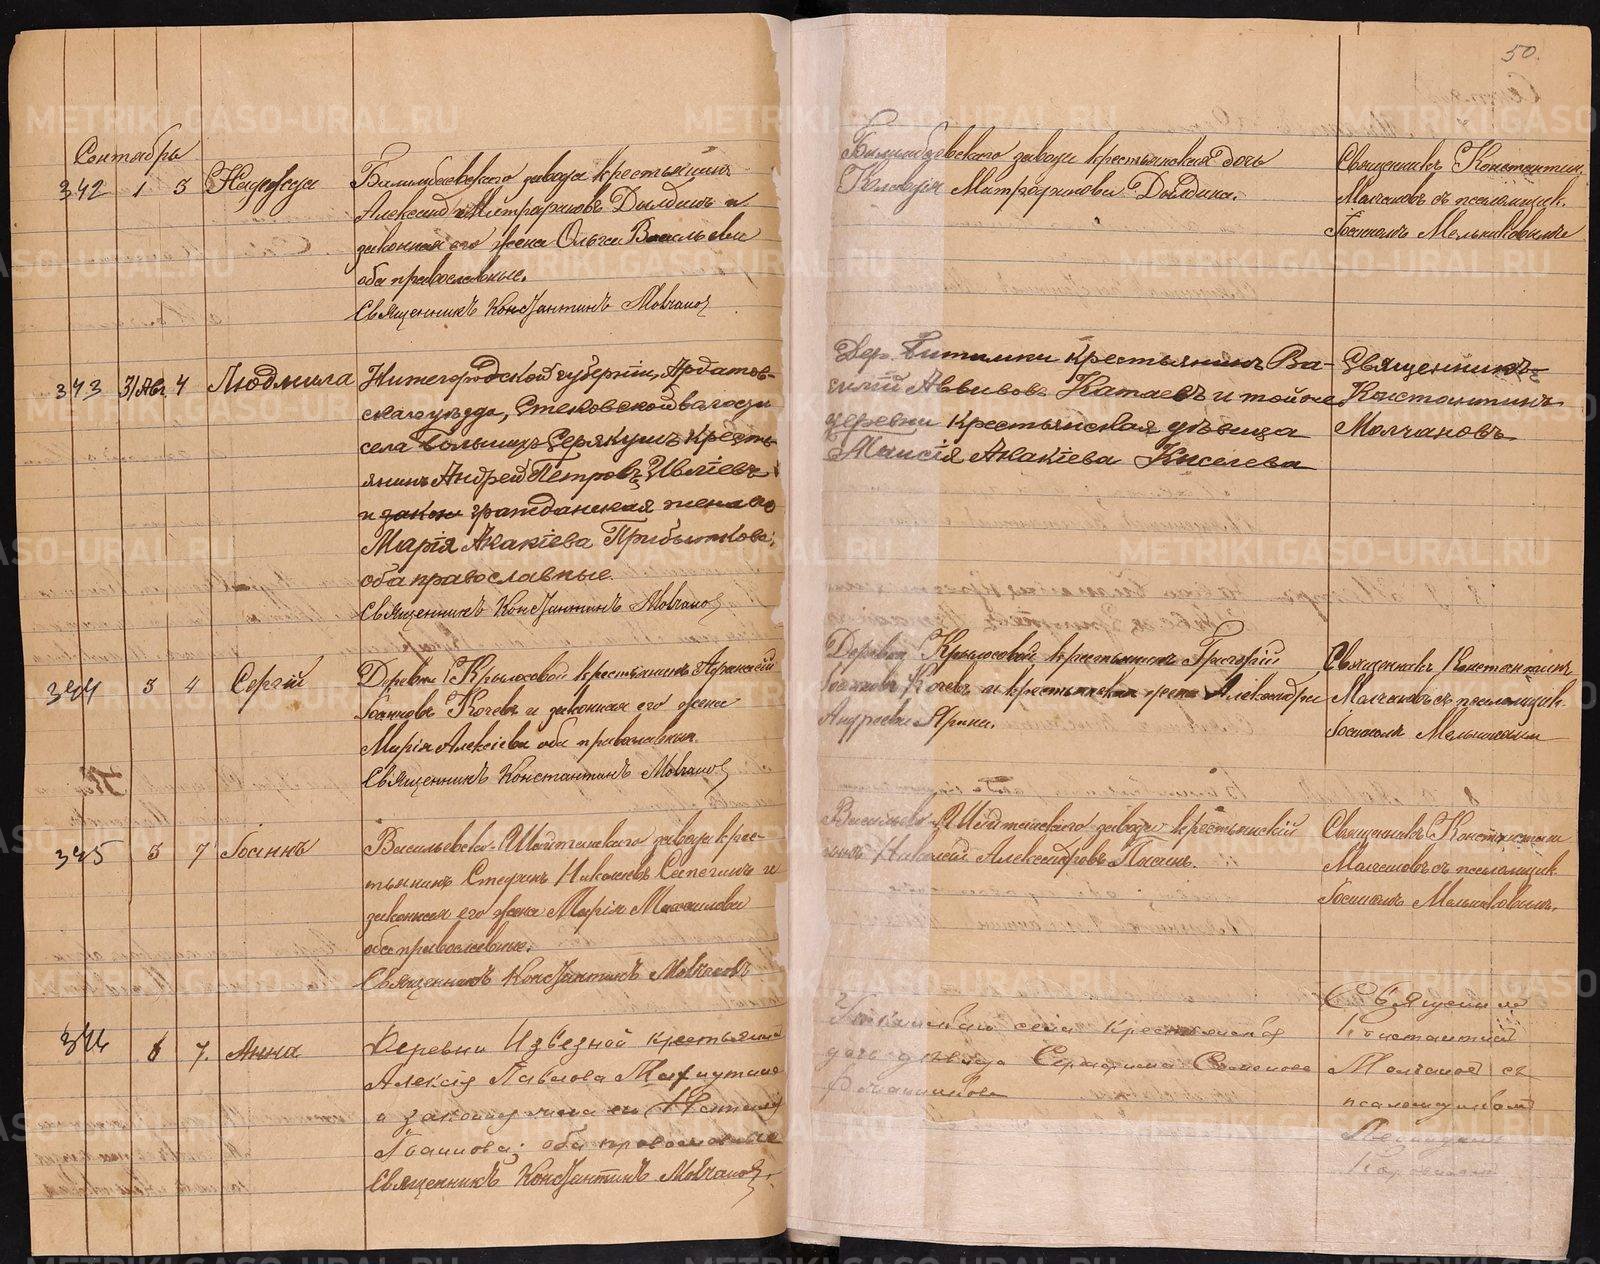 50.
Сентябрь
342 1 3 Надежда
Билимбаевскаго завода крестьянинъ
Александръ Митрофановъ Дылдинъ и
законная его жена Ольга Васильева
оба православные.
Священникъ Константинъ Молчановъ
Билимбаевскаго завода крестьянская дочь
Клавдія Митрофанова Дылдина.
Священникъ Константинъ
Молчановъ съ псаломщик.
Іоанномъ Мельниковымъ
343 31 Авг. 4 Людмила
Нижегородской губерніи, Ардатов-
скаго уѣзда, Стексовской волости
села Большихъ Серякушъ кресть-
янинъ Андрей Петровъ Ивлiевъ
и закон гражданская жена его
Марія Акакіева Прибыткова;
оба православные.
Священникъ Константинъ Молчановъ
Дер. Битимки крестьянинъ Ва-
силій Аввивовъ Катаевъ и той же
деревни крестьянская дѣвица
Таисія Акакіева Киселева
Священникъ
Константинъ
Молчановъ
344 3 4 Сергій
Деревни Крылосовой крестьянинъ Афанасій
Іоанновъ Кочевъ и законная его жена
Марія Алексіева оба православные.
Священникъ Константинъ Молчановъ
Деревни Крылосовой крестьянинъ Григорій
Іоанновъ Кочевъ и крестьянская жена Александра
Андреева Ярина.
Священникъ Константинъ
Молчановъ съ псаломщик.
Іоанномъ Мельниковым
345 5 7 Іоаннъ
Васильево-Шайтанскаго завода крес-
тьянинъ Стефанъ Николаевъ Сапегинъ и
законная его жена Марія Михаилова
оба православные.
Священникъ Константинъ Молчановъ
Васильево-Шайтанскаго завода крестьянскій
сынъ Николай Александровъ
Священникъ Константинъ
Молчановъ съ псаломщик.
Іоанномъ Мельниковымъ.
346 6 7 Анна
Деревни Извездной крестьянинъ
Алексій Павлова
и законная жена его
Іоаннова; оба православные
Священникъ Константинъ Молчановъ
села крестьянская
дочь дѣвица Серафима Семенова
Священник
Константин
Молчанов съ
псаломщиком
METRIKI.GASO-URAL.RU